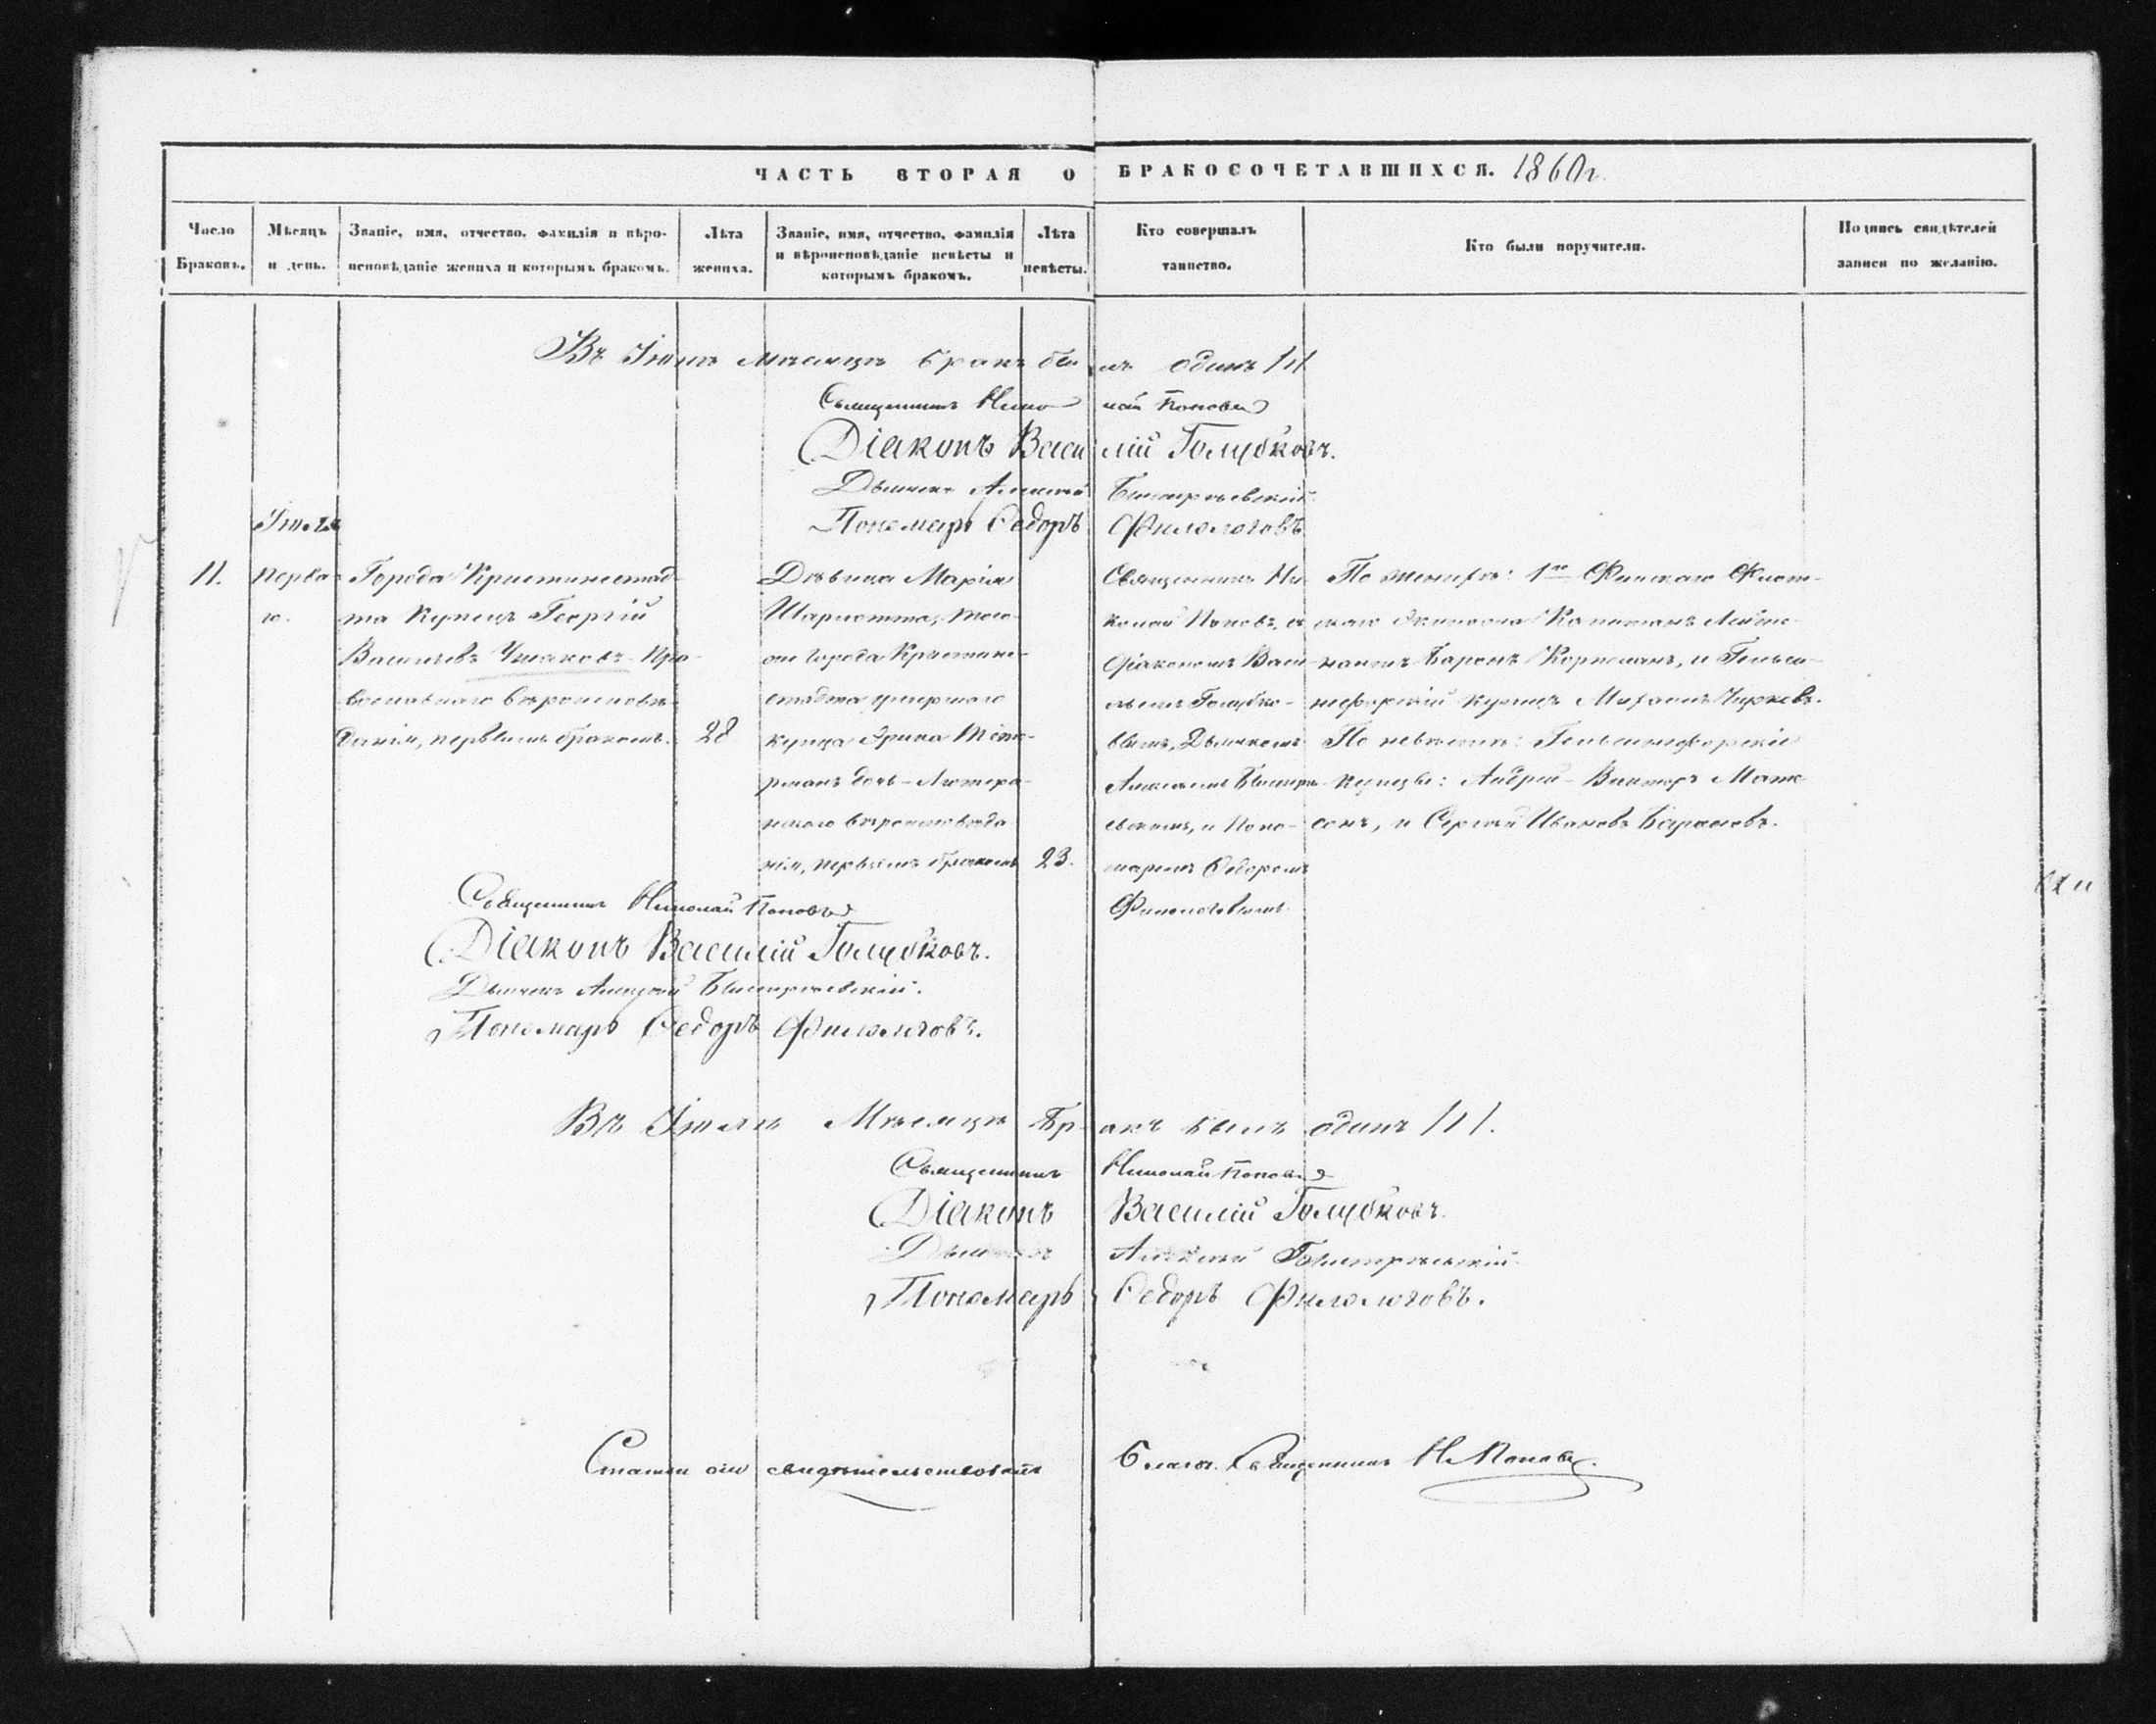 ЧАСТЬ ВТОРАЯ О БРАКОСОЧЕТАВШИХСЯ. 1860 г.
Число Браковъ.
Мѣсяцъ и день.
Званіе, имя, отчество, фамилія и вѣро-
исповѣданіе жениха и которымъ бракомъ.
Лѣта
жениха.
Званіе, имя, отчество, фамилія
и вѣроисповѣданіе невѣсты и
которымъ бракомъ.
Лѣта
невѣсты.
Кто совершалъ
таинство.
Кто были поручители.
Подпись свидѣтелей
записи по желанію.
Въ Іюнѣ мѣсяцѣ бракъ былъ одинъ /1/
Священникъ Николай Поповъ
Діаконъ Василій Голубковъ.
Дьячекъ Алексѣй
Пономарь Ѳедоръ Филологовъ
Іюля
11.
перва-
го.
Города Кристинестад-
та Купецъ Георгій
Васильевъ Ушаковъ Пра-
вославнаго вѣроисповѣ-
данія, первымъ бракомъ.
28
Дѣвица Марія
Шарлотта, того-
же города Кристине-
стадта умершаго
купца Эрика
дочь - Лютера-
нскаго вѣроисповѣда
нія, первымъ бракомъ
23.
Священникъ Ни-
колай Поповъ, съ
Діакономъ Васи-
льемъ Голубко-
вымъ, Дьячкомъ
Алексѣемъ
и Поно-
маремъ Ѳедоромъ
Филологовымъ.
По женихѣ: 1го Финскаго Флот-
скаго Экипажа Капитанъ Лейте-
нантъ Баронъ и Гельси-
нгфорскій купецъ Михаилъ
По невѣстѣ: Гельсингфорскіе
купцы: Андрей - Викторъ
и Сергѣй Ивановъ
Священникъ Николай Поповъ
Діаконъ Василій Голубковъ.
Дьячекъ Алексѣй
Пономарь Ѳедоръ Филологовъ.
Въ Іюлѣ Мѣсяцѣ Бракъ былъ одинъ /1/.
Священникъ Николай Поповъ
Діаконъ Василій Голубковъ.
Дьячекъ Алексѣй
Пономарь Ѳедоръ Филологовъ.
свидѣтельствовалъ Благоч. Священникъ Н. Поповъ.